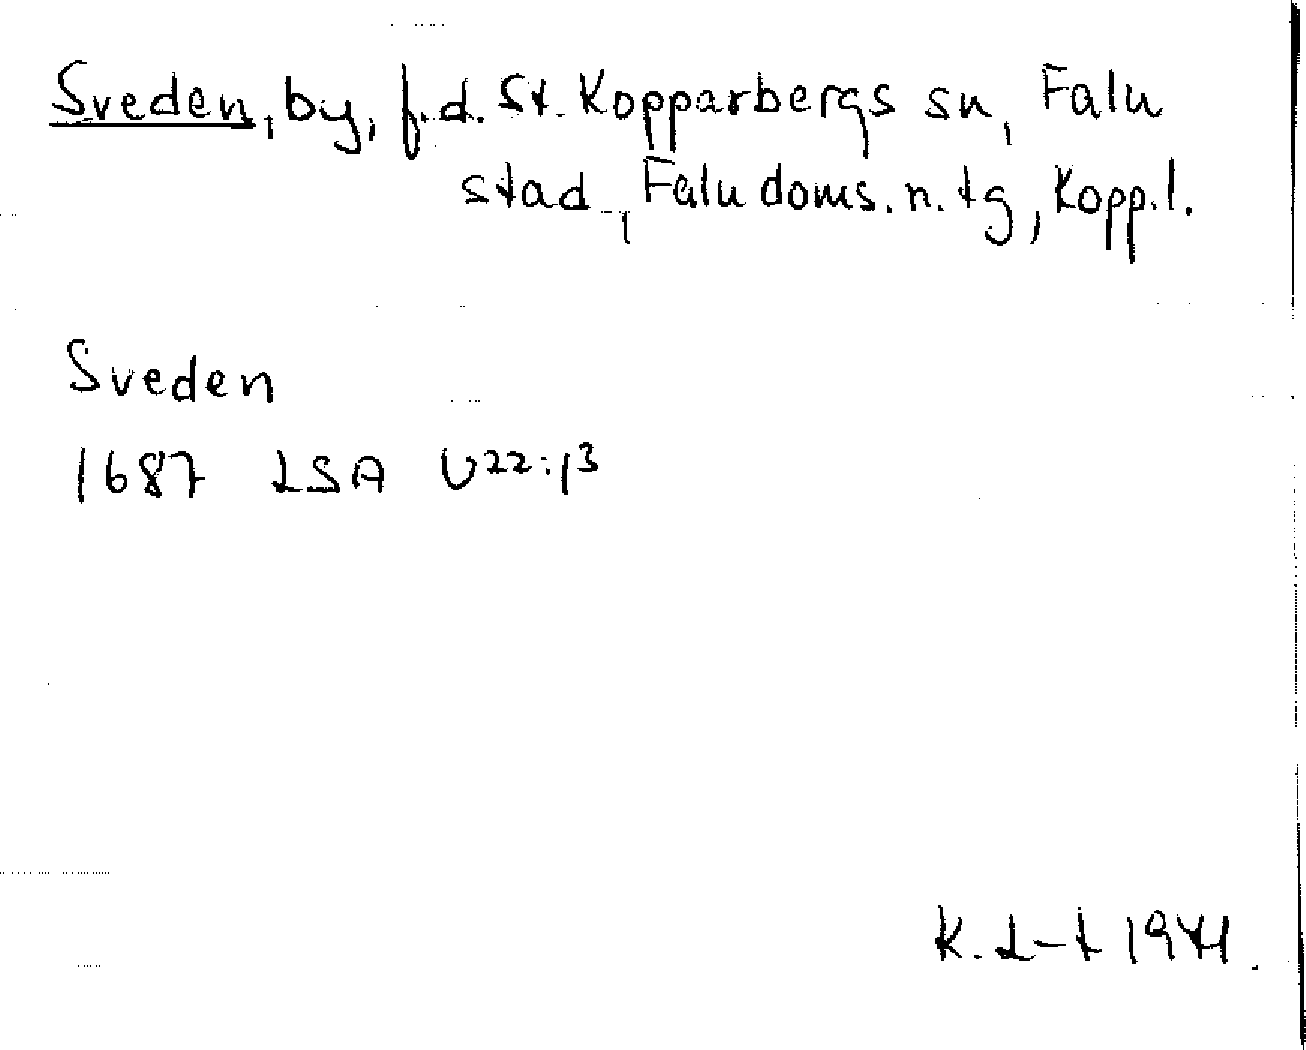 Sveden, by, f.d. St. Kopparbergs sn, Falu
stad, Falu doms. n. tg, Kopp.l.
Sveden
1687 LSA U22:13
K. L-t 1941.